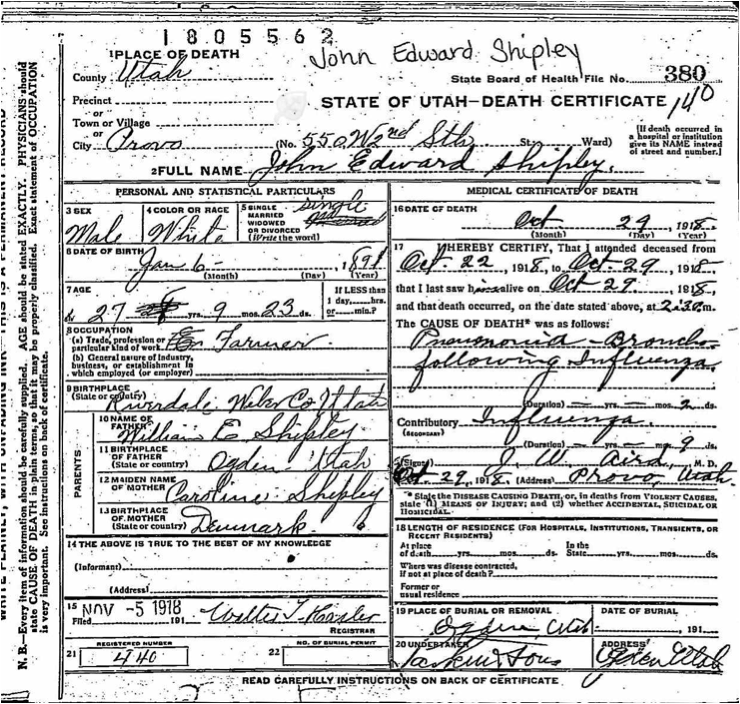 1805562
John Edward Shipley
1 PLACE OF DEATH
County Utah
State Board of Health File No. 380
Precinct
or
Town or Village
or
City Provo
STATE OF UTAH—DEATH CERTIFICATE 140
(No. 550 W 2nd Sth St.; Ward)
[If death occurred in a hospital or institution give its NAME instead of street and number.]
2 FULL NAME John Edward Shipley.
PERSONAL AND STATISTICAL PARTICULARS
3 SEX
Male
4 COLOR OR RACE
White
5 SINGLE
MARRIED
WIDOWED
OR DIVORCED
(Write the word)
single
6 DATE OF BIRTH
Jan 6 - 1891
(Month) (Day) (Year)
7 AGE
27 yrs. 9 mos. 23 ds.
If LESS than
1 day,....hrs.
or....min.?
8 OCCUPATION
(a) Trade, profession or
particular kind of work Farmer
(b) General nature of industry,
business, or establishment in
which employed (or employer)
9 BIRTHPLACE
(State or country)
Riverdale Weber Co Utah
PARENTS
10 NAME OF
FATHER
William E Shipley.
11 BIRTHPLACE
OF FATHER
(State or country) Ogden Utah
12 MAIDEN NAME
OF MOTHER Caroline Shipley
13 BIRTHPLACE
OF MOTHER
(State or country) Denmark.
14 THE ABOVE IS TRUE TO THE BEST OF MY KNOWLEDGE
(Informant)
(Address)
15 NOV -5 1918
Filed 191
Walter T. Hasler
REGISTRAR
REGISTERED NUMBER
21 440
NO. OF BURIAL PERMIT
22
MEDICAL CERTIFICATE OF DEATH
16 DATE OF DEATH
Oct 29, 1918.
(Month) (Day) (Year)
17 I HEREBY CERTIFY, That I attended deceased from
Oct. 22, 1918, to Oct. 29, 1918
that I last saw him alive on Oct 29, 1918,
and that death occurred, on the date stated above, at 2:30 m.
The CAUSE OF DEATH* was as follows:
Pneumonia - Broncho
following Influenza.
(Duration) — yrs. — mos. 2 ds.
Contributory Influenza.
(SECONDARY)
(Duration) — yrs. — mos. 9 ds.
(Signed) J. W. Aird, M. D.
Oct. 29, 1918. (Address) Provo, Utah.
* State the DISEASE CAUSING DEATH, or, in deaths from VIOLENT CAUSES,
state (1) MEANS OF INJURY; and (2) whether ACCIDENTAL, SUICIDAL OR
HOMICIDAL.
18 LENGTH OF RESIDENCE (FOR HOSPITALS, INSTITUTIONS, TRANSIENTS, OR
RECENT RESIDENTS)
At place
of death....yrs....mos....ds.
In the
State....yrs....mos....ds.
Where was disease contracted,
if not at place of death?
Former or
usual residence
19 PLACE OF BURIAL OR REMOVAL
Ogden, Utah
DATE OF BURIAL
191
20 UNDERTAKER
Larkin & Sons
ADDRESS
Ogden Utah
READ CAREFULLY INSTRUCTIONS ON BACK OF CERTIFICATE
N. B.—Every item of information should be carefully supplied. AGE should be stated EXACTLY. PHYSICIANS should
state CAUSE OF DEATH in plain terms, so that it may be properly classified. Exact statement of OCCUPATION
is very important. See instructions on back of certificate.